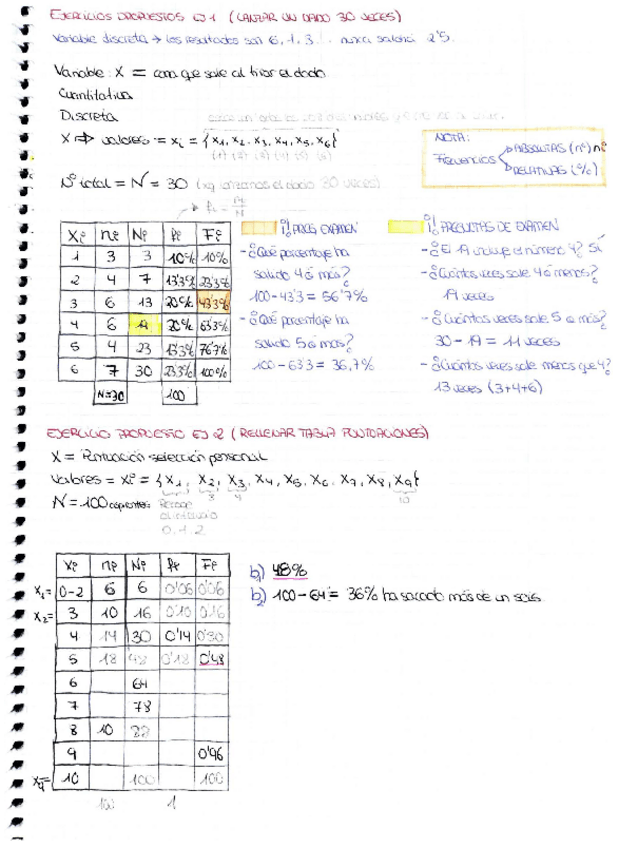 EJERCICIOS PROPUESTOS EJ 1 (LANZAR UN DADO 30 VECES)
Variable discreta → los resultados son 6, 1, 3... nunca saldrá 2'5
Variable: X = cara que sale al tirar el dado
Cuantitativa
Discreta
X ⇒ valores := xi = {x1, x2, x3, x4, x5, x6}
(1) (2) (3) (4) (5) (6)
NOTA:
Frecuencias
ABSOLUTAS (nº) ni
RELATIVAS (%)
Nº total = N = 30 (xq lanzamos el dado 30 veces)
fi = ni/N
Xi ni Ni fi Fi
1 3 3 10% 10%
2 4 7 13'3% 23'3%
3 6 13 20% 43'3%
4 6 19 20% 63'3%
5 4 23 13'3% 76'7%
6 7 30 23'3% 100%
N=30 100
¡! PREG EXAMEN
- ¿Qué porcentaje ha
salido 4 ó más?
100-43'3 = 56'7%
- ¿Qué porcentaje ha
salido 5 ó más?
100-63'3 = 36,7%
¡! PREGUNTAS DE EXAMEN
- ¿El 19 incluye el número 4? Sí
- ¿Cuántas veces sale 4 ó menos?
19 veces
- ¿Cuántas veces sale 5 o más?
30 - 19 = 11 veces
- ¿Cuántas veces sale menos que 4?
13 veces (3+4+6)
EJERCICIO PROPUESTO EJ 2 (RELLENAR TABLA PUNTUACIONES)
X = Puntuación selección personal
Valores = Xi = {x1, x2, x3, x4, x5, x6, x7, x8, x9}
3 4 10
N = 100 aspirantes
Recoge
el intervalo
0, 1, 2
Xi ni Ni fi Fi
X1= 0-2 6 6 0'06 0'06
X2= 3 10 16 0'10 0'16
4 14 30 0'14 0'30
5 18 48 0'18 0'48
6 64
7 78
8 10 88
9 0'96
X9= 10 100 100
100 1
b1) 48%
b2) 100-64 = 36% ha sacado más de un seis